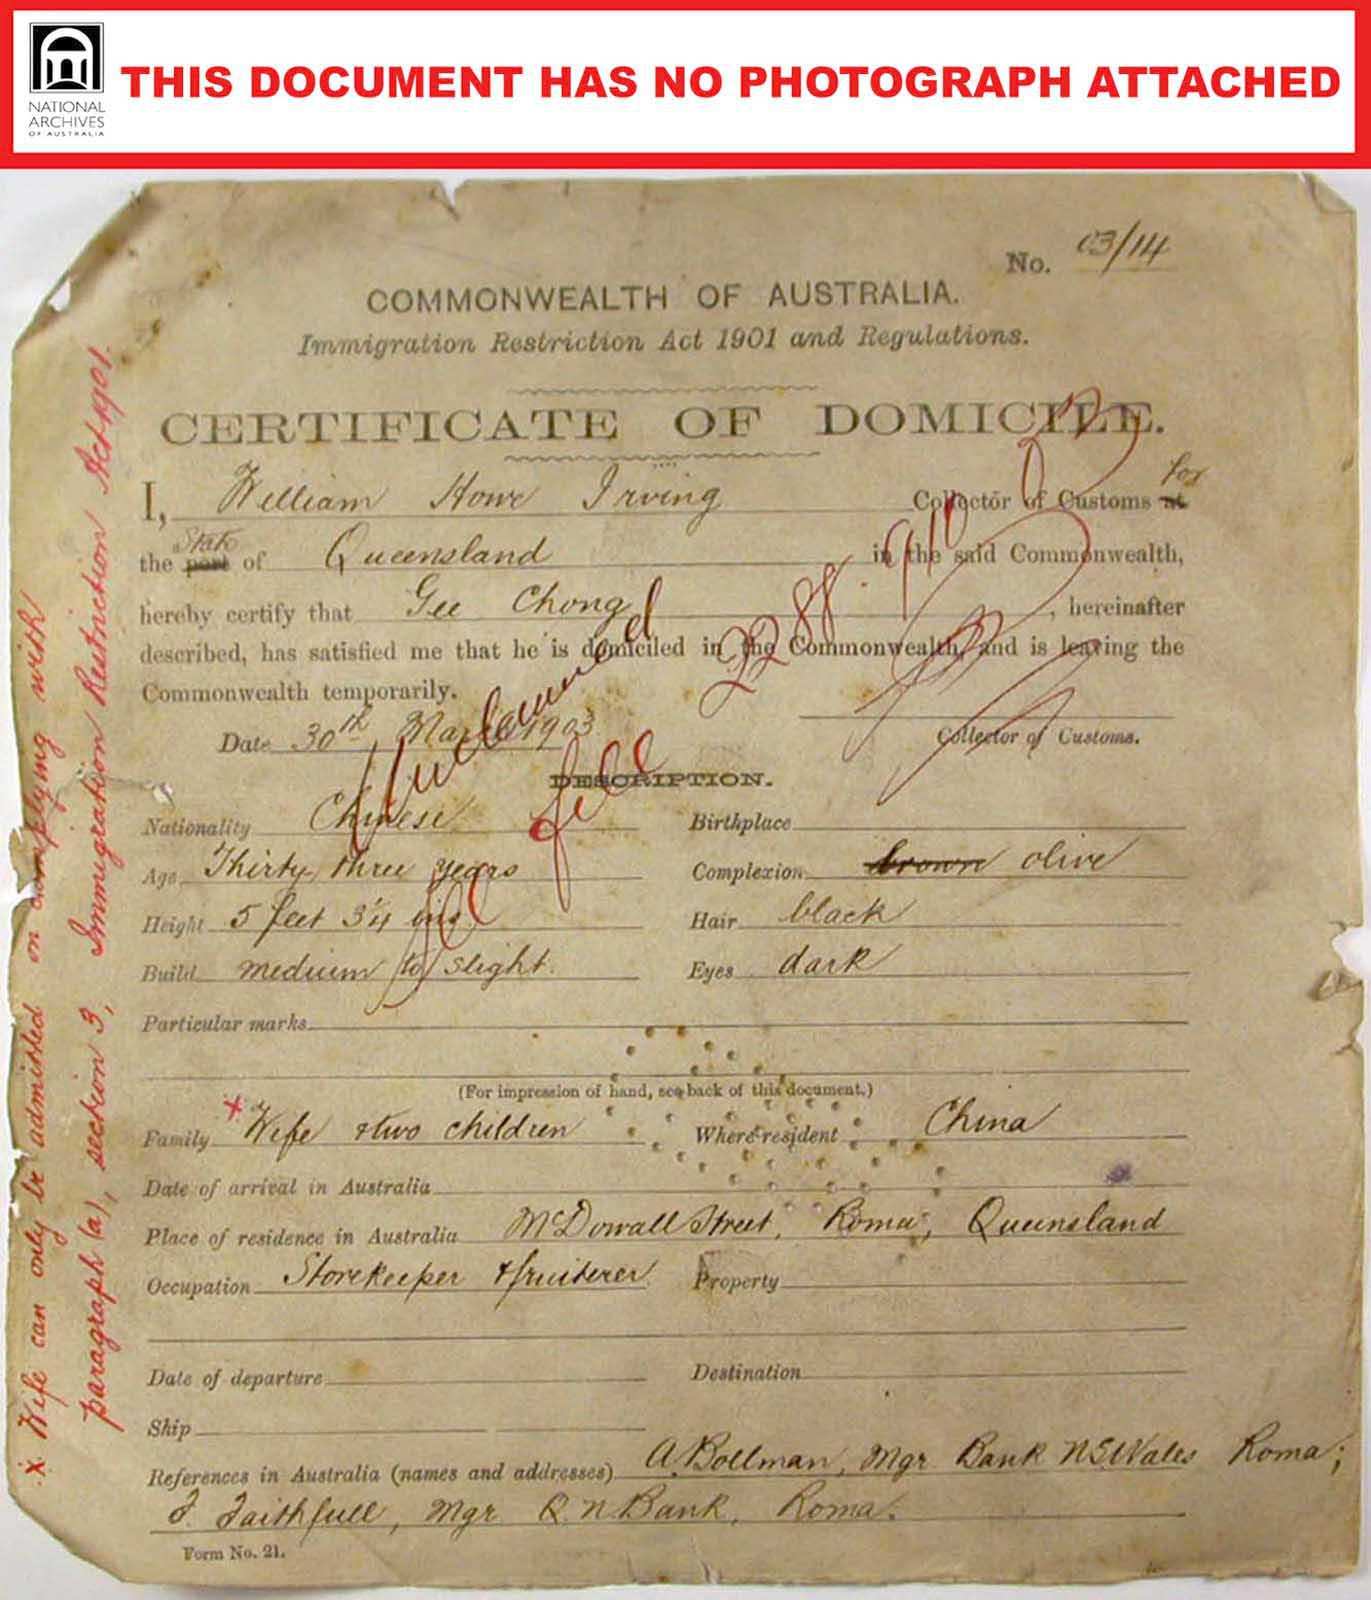 NATIONAL
ARCHIVES
OF AUSTRALIA
THIS DOCUMENT HAS NO PHOTOGRAPH ATTACHED
No. 03/14
COMMONWEALTH OF AUSTRALIA.
Immigration Restriction Act 1901 and Regulations.
CERTIFICATE OF DOMICILE.
I, William Howe Irving Collector of Customs at for
the port State of Queensland in the said Commonwealth,
hereby certify that Gee Chong, hereinafter
described, has satisfied me that he is domiciled in the Commonwealth, and is leaving the
Commonwealth temporarily.
Date 30th March 1903
Collector of Customs.
DESCRIPTION.
Nationality Chinese Birthplace
Age Thirty three years Complexion brown olive
Height 5 feet 3¼ ins Hair black
Build medium to slight. Eyes dark
Particular marks
(For impression of hand, see back of this document.)
x
Family Wife & two children Where resident China
Date of arrival in Australia
Place of residence in Australia McDowall Street, Roma, Queensland
Occupation Storekeeper & fruiterer. Property
Date of departure Destination
Ship
References in Australia (names and addresses) A. Bollman, Mgr Bank NSWales Roma;
F. Faithfull, Mgr Q.N. Bank, Roma.
Form No. 21.
x Wife can only be admitted on complying with
paragraph (a), section 3, Immigration Restriction Act 1901.